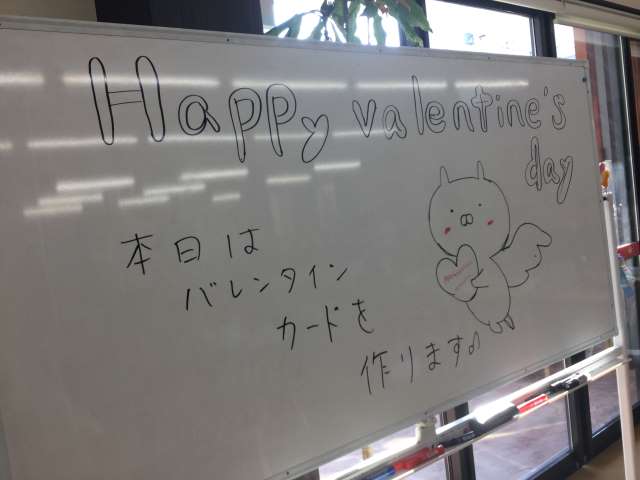 Happy valentine's
day
本日は
バレンタイン
カードを
作ります♪